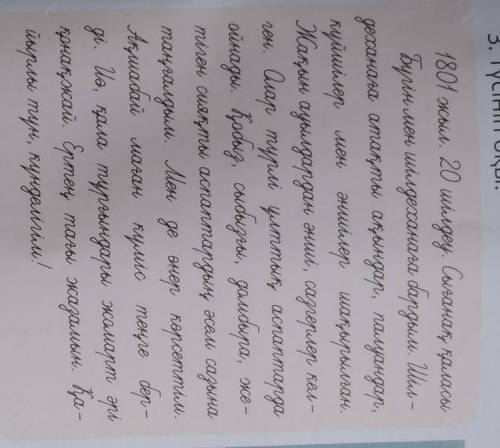 1801 жыл. 20 шілдеу. Сығанақ қаласы
Бүгін мен шілдеханаға бардым. Шіл-
деханаға атақты ақындар, палуандар,
күйшілер мен әншілер шақырылған.
Жақын ауылдардан әнші, сазгерлер кел-
ген. Олар түрлі ұлттық аспаптарда
ойнады. Қобыз, сыбызғы, домбыра, же-
тіген сияқты аспаптардың әсем сазына
таңғалдым. Мен де өнер көрсеттім.
Ақшабай маған күміс теңге бер-
ді. Иә, қала тұрғындары жомарт әрі
қонақжай. Ертең тағы жазамын. Қа-
йырлы түн, күнделігім!